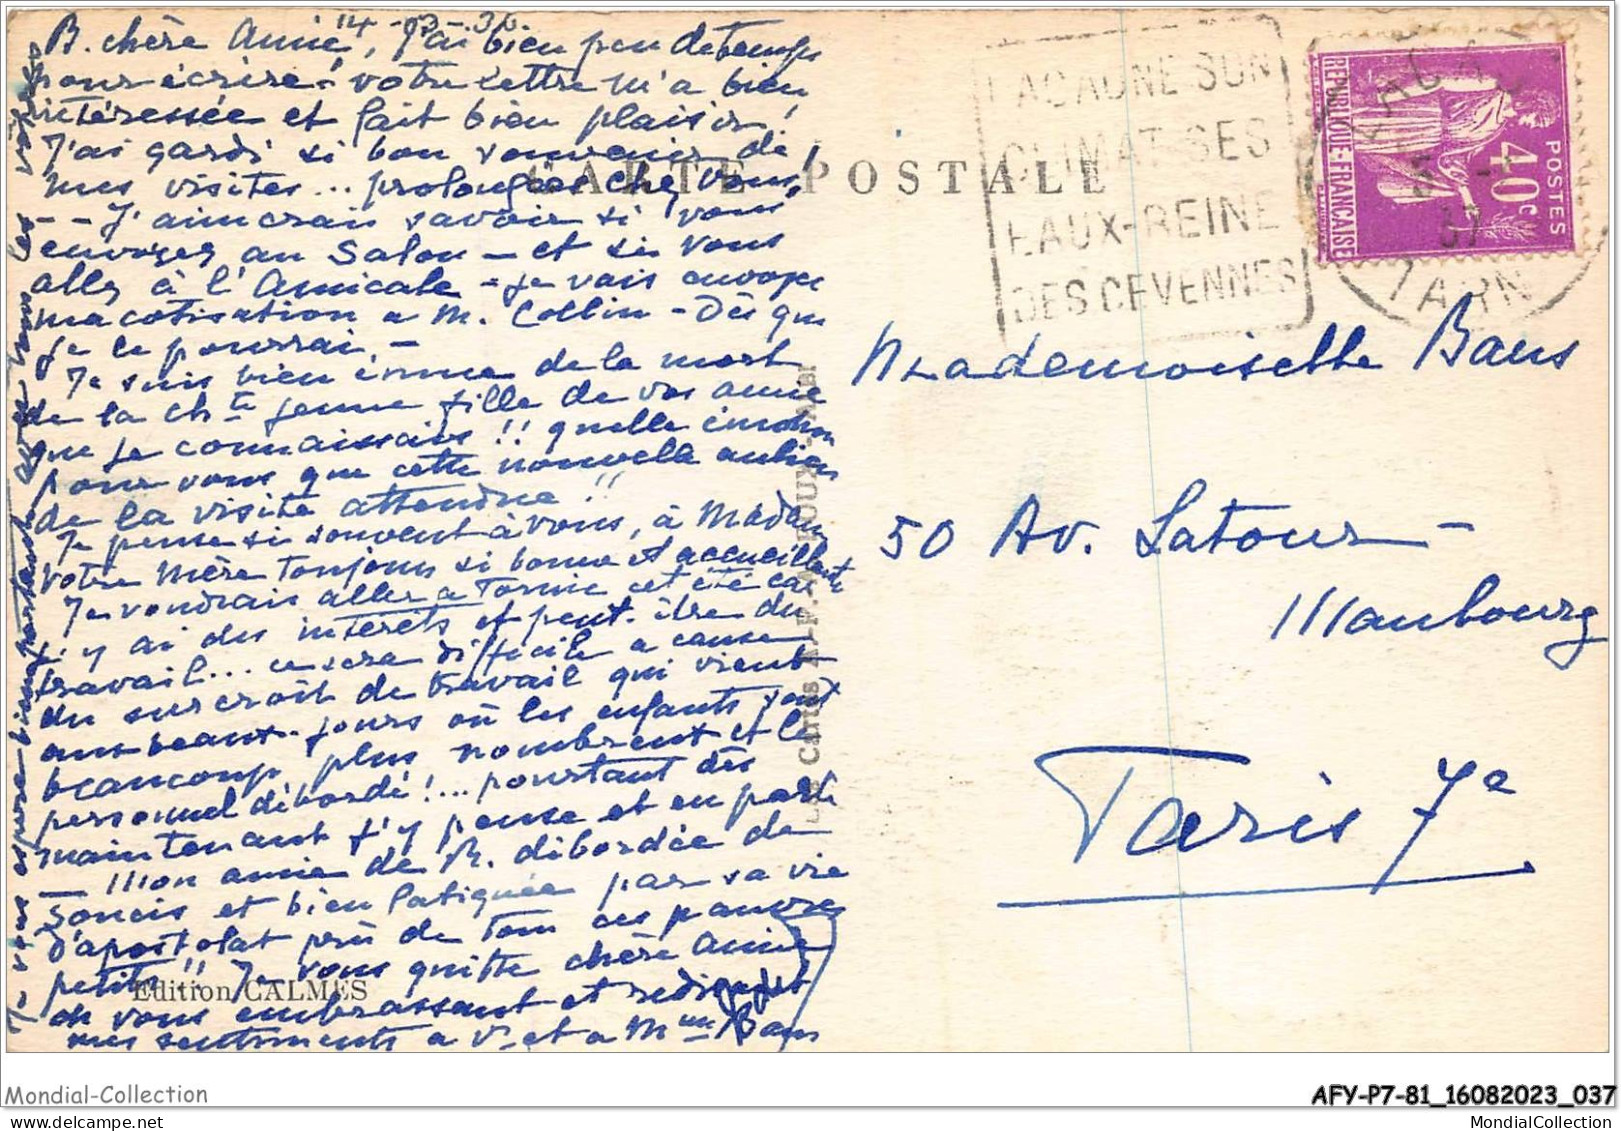 14 - 3 - 36.
B. chère Amie, J'ai bien peu de temps
pour écrire ! votre lettre m'a bien
intéressée et fait bien plaisir !
J'ai gardé si bon souvenir de
mes visites... prolongées chez vous !
-- J'aimerais savoir si vous
envoyez au Salon - et si vous
allez à l'Amicale - je vais envoyer
ma cotisation à M. Collin - Dès que
je le pourrai. -
Je suis bien émue de la mort
de la chte jeune fille de vos amie
que je connaissais !! quelle émotion
pour vous que cette nouvelle au lieu
de la visite attendue !!
Je pense si souvent à vous, à Madam
votre mère toujours si bonne et accueillante
Je voudrais aller à cet été car
j'y ai des intérêts et peut-être du
travail... ce sera difficile à cause
du surcroit de travail qui vient
aux beaux-jours où les enfants sont
beaucoup plus nombreux et le
personnel débordé !... pourtant dès
maintenant j'y pense et en parle
- Mon amie de R. débordée de
soucis et bien fatiguée par sa vie
d'apostolat près de tous ces pauvres
petits !! Je vous quitte chère Amie
en vous embrassant et redisant
mes sentiments à V. et à Mme Baus
Je vous espère bien portante avec tous les
CARTE POSTALE
LACAUNE SON
CLIMAT SES
EAUX-REINE
DES CEVENNES
LACAU
37
TARN
REPUBLIQUE-FRANÇAISE
POSTES
40c
Mademoiselle Baus
50 Av. Latour -
Maubourg
Paris 7e
Edition CALMES
Mondial-Collection
AFY-P7-81_16082023_037
MondialCollection.com